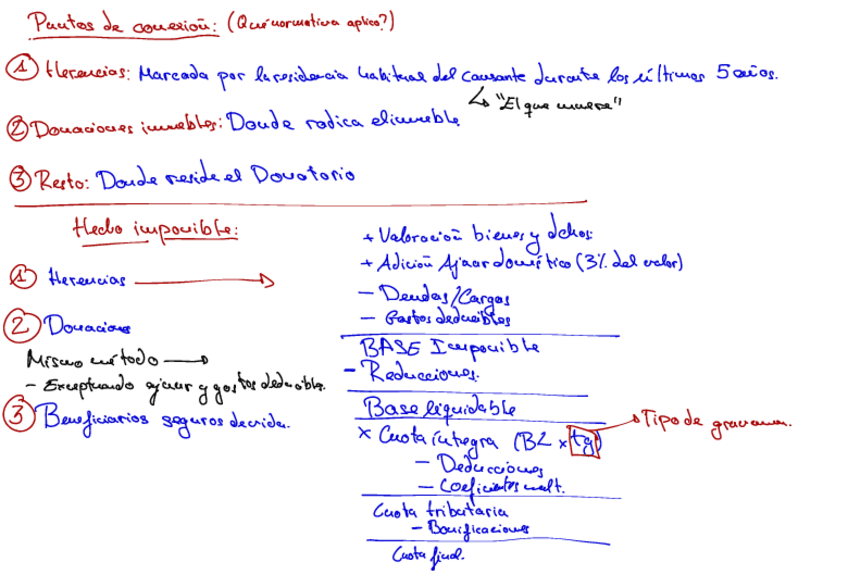 Puntos de conexión: (Qué normativa aplico?)
① Herencias: Marcada por la residencia habitual del causante durante los últimos 5 años.
↳ "El que muere"
② Donaciones inmuebles: Donde radica el inmueble
③ Resto: Donde reside el Donatario
Hecho imponible:
① Herencias →
② Donaciones
Mismo método →
- Exceptuando ajuar y gastos deducible.
③ Beneficiarios seguros de vida.
+ Valoración bienes y dchos.
+ Adición Ajuar doméstico (3% del valor)
- Deudas/Cargas
- Gastos deducibles
BASE Imponible
- Reducciones.
Base liquidable
x Cuota íntegra (BL x tg) → Tipo de gravamen.
- Deducciones
- Coeficientes mult.
Cuota tributaria
- Bonificaciones
Cuota final.